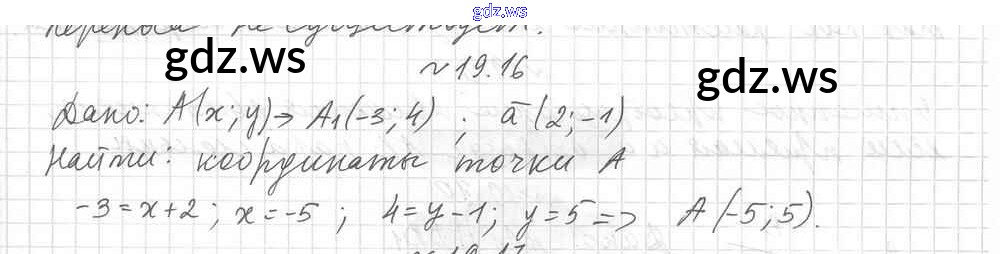 gdz.ws
переноса не существует.
gdz.ws
№19.16
gdz.ws
Дано: A(x; y) → A₁(-3; 4) ; ā (2; -1)
Найти: координаты точки A
-3 = x + 2 ; x = -5 ; 4 = y - 1; y = 5 => A (-5; 5).
№19.17